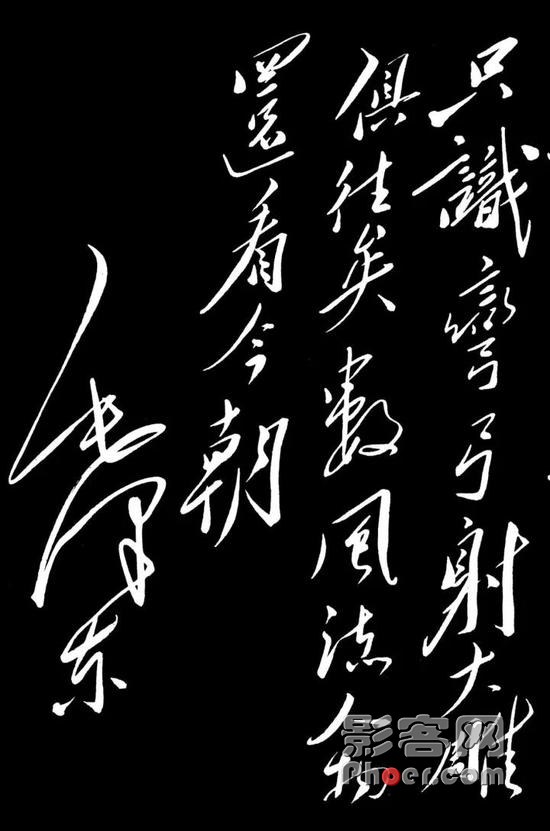 只識彎弓射大雕
俱往矣數風流人物
還看今朝
毛澤东
影客网
Phoer.com